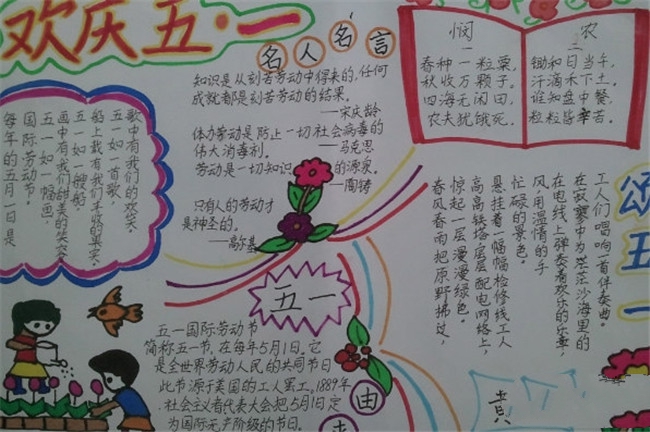 欢庆五·一
名人名言
知识是从刻苦劳动中得来的,任何
成就都是刻苦劳动的结果。
——宋庆龄
体办劳动是防上一切社会病毒的
伟大消毒剂。——马克思
劳动是一切知识的源泉。
——陶铸
只有人的劳动才
是神圣的。
——高尔基
悯农
一
春种一粒粟,
秋收万颗子。
四海无闲田,
农夫犹饿死。
二
锄和日当午
汗滴禾下土
谁知盘中餐
粒粒皆辛苦。
每年的五月一日是
国际劳动节。
五一如一幅画,
画中有我们甜美的笑容。
五一如一艘船,
船上载有我们丰收的果实。
五一如一首歌,
歌中有我们的欢笑。
颂五一
春风春雨把原野拂过,
惊起一层漫漫绿色。
高高铁塔层层配电网络上,
悬挂着一幅幅检修线工人
忙碌的景色。
风,用温情的手
在电线上弹奏着欢乐的乐章,
在寂寥中为茫茫沙海里的
工人们唱响一首伴奏曲。
五一
五一国际劳动节
简称五一节,在每年5月1日。它
是全世界劳动人民的共同节日
此节源于美国的工人罢工,1889年
社会主义者代表大会把5月1日定
为国际无产阶级的节日。
由